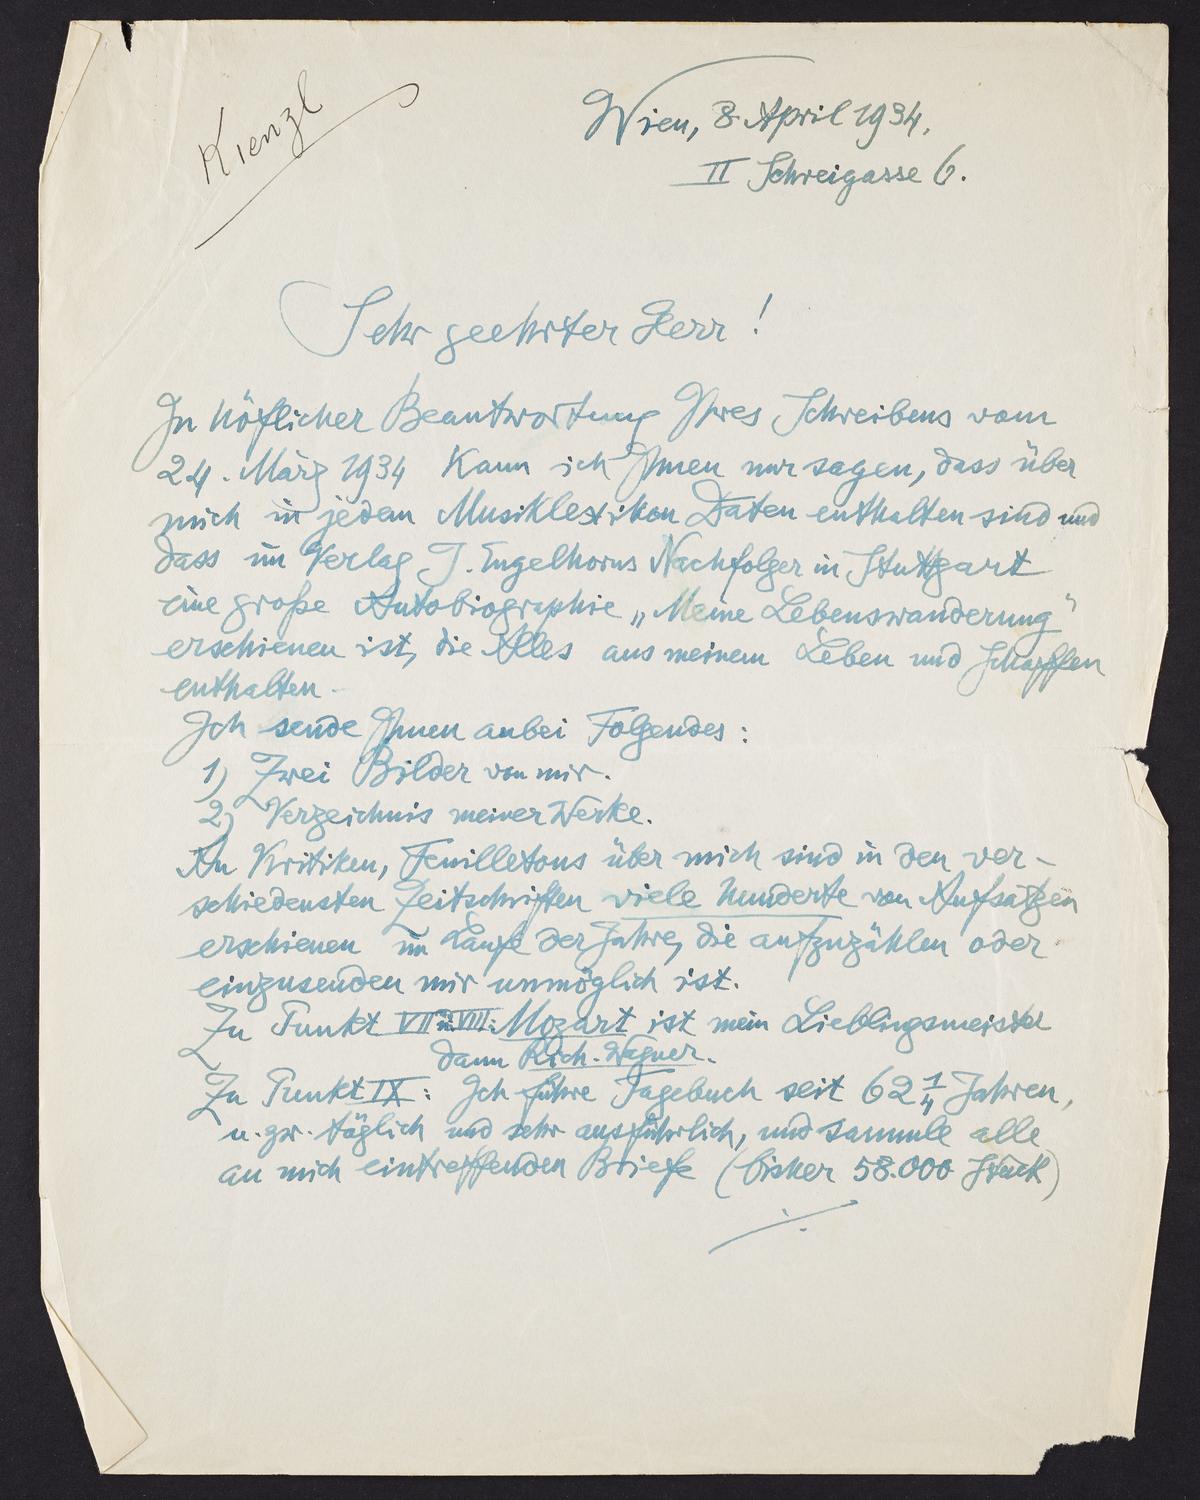 Kienzl
Wien, 8. April 1934.
II Schreigasse 6.
Sehr geehrter Herr!
In höflicher Beantwortung Ihres Schreibens vom
24. März 1934 kann ich Ihnen nur sagen, dass über
mich in jedem Musiklexikon Daten enthalten sind und
dass im Verlag J. Engelhorns Nachfolger in Stuttgart
eine große Autobiographie „Meine Lebenswanderung"
erschienen ist, die Alles aus meinem Leben und Schaffen
enthalten.
Ich sende Ihnen anbei Folgendes:
1) Zwei Bilder von mir.
2) Verzeichnis meiner Werke.
An Kritiken, Feuilletons über mich sind in den ver-
schiedensten Zeitschriften viele Hunderte von Aufsätzen
erschienen im Laufe der Jahre, die aufzuzählen oder
einzusenden mir unmöglich ist.
Zu Punkt VII u. VIII: Mozart ist mein Lieblingsmeister
dann Rich. Wagner.
Zu Punkt IX: Ich führe Tagebuch seit 62 1/4 Jahren,
u. zw. täglich und sehr ausführlich, und sammle alle
an mich eintreffenden Briefe (bisher 58.000 Stück)
./.